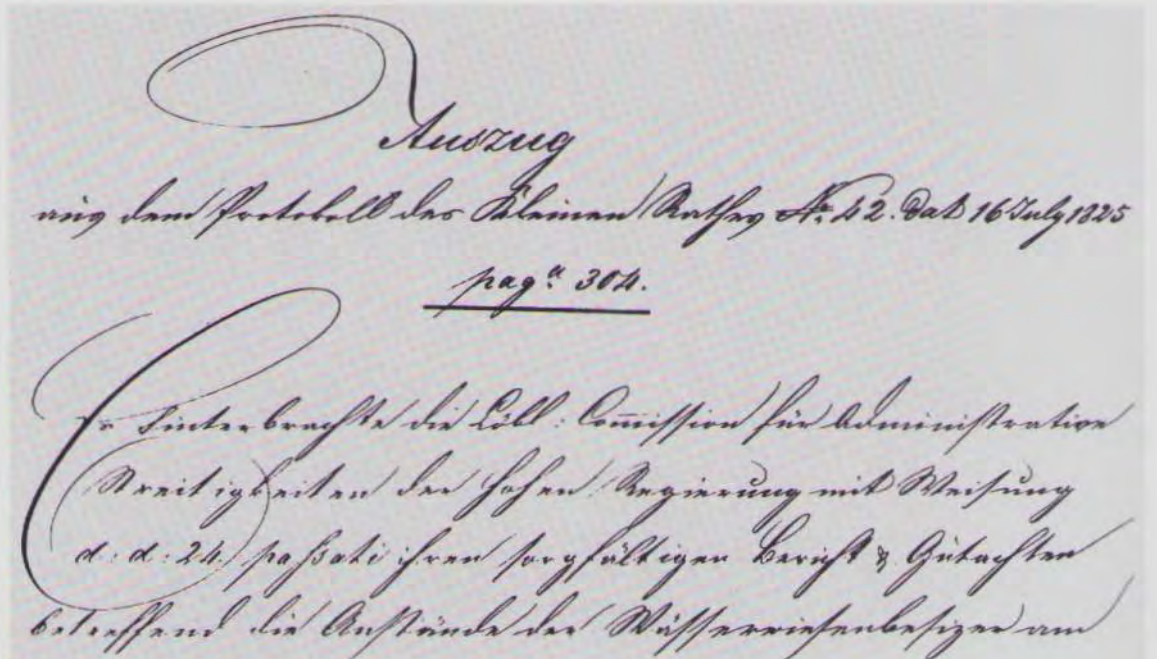 Auszug
aus dem Protokoll des Kleinen Rathes No. 42. dat 16 July 1825
pag.ᵃ 304.
Es hinterbrachte die Löbl: Com̅ission für Administrative
Streitigkeiten der hohen Regierung mit Weisung
d: d: 24. passati ihren sorgfältigen Bericht & Gutachten
betreffend die Anstände der Wässerwiesenbesizer am